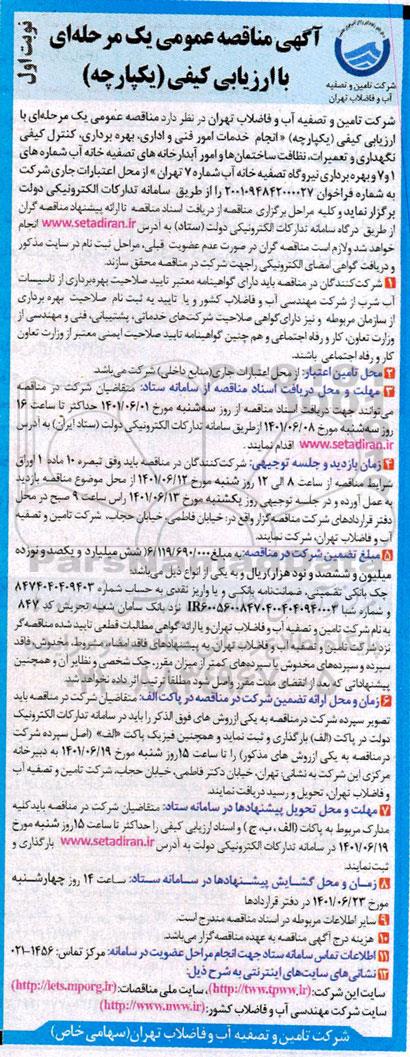 نوبت اول
آگهی مناقصه عمومی یک مرحله‌ای
با ارزیابی کیفی (یکپارچه)
شرکت تامین و تصفیه
آب و فاضلاب تهران
شرکت تامین و تصفیه آب و فاضلاب تهران در نظر دارد مناقصه عمومی یک مرحله‌ای با
ارزیابی کیفی (یکپارچه) «انجام خدمات امور فنی و اداری، بهره برداری، کنترل کیفی
نگهداری و تعمیرات، نظافت ساختمان‌ها و امور آبدارخانه های تصفیه خانه آب شماره های
۱ و ۷ و بهره برداری نیروگاه تصفیه خانه آب شماره ۷ تهران » از محل اعتبارات جاری شرکت
به شماره فراخوان ۲۰۰۱۰۹۴۸۴۲۰۰۰۰۲۷ را از طریق سامانه تدارکات الکترونیکی دولت
برگزار نماید و کلیه مراحل برگزاری مناقصه از دریافت اسناد مناقصه تا ارائه پیشنهاد مناقصه گران
از طریق درگاه سامانه تدارکات الکترونیکی دولت (ستاد) به آدرس www.setadiran.ir انجام
خواهد شد و لازم است مناقصه گران در صورت عدم عضویت قبلی، مراحل ثبت نام در سایت مذکور
و دریافت گواهی امضای الکترونیکی را جهت شرکت در مناقصه محقق سازند.
۱ شرکت‌کنندگان در مناقصه باید دارای گواهینامه معتبر تایید صلاحیت بهره‌برداری از تاسیسات
آب شرب از شرکت مهندسی آب و فاضلاب کشور و یا تایید به ثبت نام صلاحیت بهره برداری
از سازمان مربوطه و نیز دارای گواهی صلاحیت شرکت‌های خدماتی، پشتیبانی، فنی و مهندسی از
وزارت تعاون، کار و رفاه اجتماعی و هم چنین گواهینامه تایید صلاحیت ایمنی معتبر از وزارت تعاون
کار و رفاه اجتماعی باشند.
۲ محل تامین اعتبار: از محل اعتبارات جاری (منابع داخلی) شرکت می‌باشد.
۳ مهلت و محل دریافت اسناد مناقصه از سامانه ستاد: متقاضیان شرکت در مناقصه
می‌توانند جهت دریافت اسناد مناقصه از روز سه‌شنبه مورخ ۱۴۰۱/۰۶/۰۱ حداکثر تا ساعت ۱۶
روز سه‌شنبه مورخ ۱۴۰۱/۰۶/۰۸ از طریق سامانه تدارکات الکترونیکی دولت (ستاد ایران) به آدرس
www.setadiran.ir اقدام نمایند.
۴ زمان بازدید و جلسه توجیهی: شرکت‌کنندگان در مناقصه باید وفق تبصره ۱۰ ماده ۱ اوراق
شرایط مناقصه از ساعت ۸ الی ۱۲ روز شنبه مورخ ۱۴۰۱/۰۶/۱۲ از محل موضوع مناقصه بازدید
به عمل آورده و در جلسه توجیهی روز یکشنبه مورخ ۱۴۰۱/۰۶/۱۳ راس ساعت ۹ صبح در محل
دفتر قراردادهای شرکت مناقصه گزار واقع در: خیابان فاطمی، خیابان حجاب، شرکت تامین و تصفیه
آب و فاضلاب تهران، شرکت نمایند.
۵ مبلغ تضمین شرکت در مناقصه: به مبلغ ۶/۱۱۹/۶۹۰/۰۰۰ (شش میلیارد و یکصد و نوزده
میلیون و ششصد و نود هزار) ریال و به یکی از انواع ذیل می‌باشد
چک بانکی تضمینی، ضمانت‌نامه بانکی و یا واریز نقدی به حساب شماره ۸۴۷۴۰۴۰۴۰۹۴۰۳
نزد بانک سامان شعبه تجریش کد ۸۴۷
به نام شرکت تامین و تصفیه آب و فاضلاب تهران و یا ارائه گواهی مطالبات قطعی تایید شده مناقصه گر
نزد شرکت تامین و تصفیه آب و فاضلاب تهران. به پیشنهادهای فاقد امضاء، مشروط، مخدوش، فاقد
سپرده و سپرده‌های مخدوش یا سپرده‌های کمتر از میزان مقرر، چک شخصی و نظایر آن و همچنین
پیشنهاداتی که بعد از انقضای مدت مقرر واصل شود، مطلقا ترتیب اثر داده نخواهد شد.
۶ زمان و محل ارائه تضمین شرکت در مناقصه در پاکت الف: متقاضیان شرکت در مناقصه باید
تصویر سپرده شرکت در مناقصه به یکی از روش های فوق الذکر را باید در سامانه تدارکات الکترونیک
دولت در پاکت (الف) بارگذاری و ثبت نماید و همچنین فیزیک پاکت «الف» (اصل سپرده شرکت
در مناقصه به یکی از روش های مذکور) را تا ساعت ۱۵ روز شنبه مورخ ۱۴۰۱/۰۶/۱۹ به دبیرخانه
مرکزی این شرکت به نشانی: تهران، خیابان دکتر فاطمی، خیابان حجاب، شرکت تامین و تصفیه آب
و فاضلاب تهران، تحویل و رسید دریافت نمایند.
۷ مهلت و محل تحویل پیشنهادها در سامانه ستاد: متقاضیان شرکت در مناقصه باید کلیه
مدارک مربوط به پاکات (الف، ب، ج) و اسناد ارزیابی کیفی را حداکثر تا ساعت ۱۵ روز شنبه مورخ
۱۴۰۱/۰۶/۱۹ در سامانه تدارکات الکترونیکی دولت به آدرس www.setadiran.ir بارگذاری و
ثبت نمایند.
۸ زمان و محل گشایش پیشنهادها در سامانه ستاد: ساعت ۱۴ روز چهارشنبه
مورخ ۱۴۰۱/۰۶/۲۳ در دفتر قراردادها
۹ سایر اطلاعات مربوطه در اسناد مناقصه مندرج است.
۱۰ هزینه درج آگهی مناقصه به عهده مناقصه گزار می‌باشد.
۱۱ اطلاعات تماس سامانه ستاد جهت انجام مراحل عضویت در سامانه: مرکز تماس: ۱۴۵۶-۰۲۱
۱۲ نشانی های سایت‌های اینترنتی به شرح ذیل:
سایت این شرکت: (http://tww.tpww.ir)، سایت ملی مناقصات: (http://iets.mporg.ir)
سایت شرکت مهندسی آب و فاضلاب کشور: (http://www.nww.ir)
شرکت تامین و تصفیه آب و فاضلاب تهران (سهامی خاص)